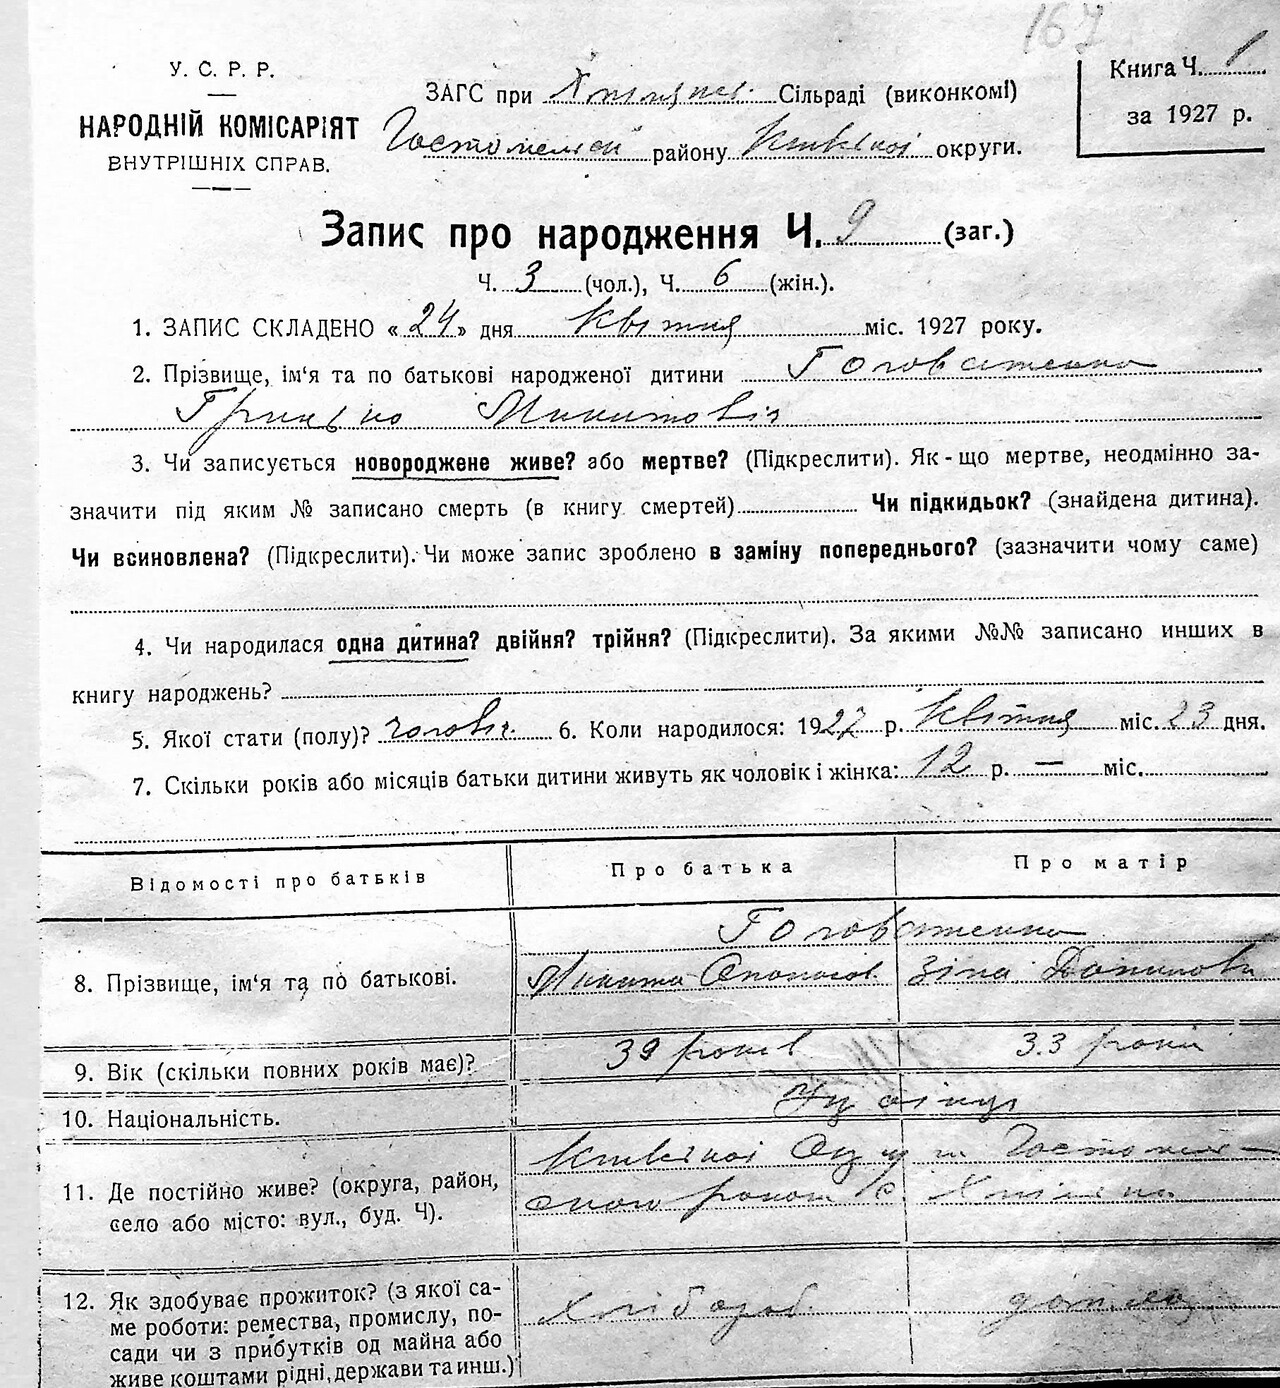 167
У. С. Р. Р.
НАРОДНІЙ КОМІСАРІЯТ
ВНУТРІШНІХ СПРАВ.
ЗАГС при Сільраді (виконкомі)
району округи.
Книга Ч. 1
за 1927 р.
Запис про народження Ч. 9 (заг.)
Ч. 3 (чол.), Ч. 6 (жін.).
1. ЗАПИС СКЛАДЕНО «24» дня квітня міс. 1927 року.
2. Прізвище, ім'я та по батькові народженої дитини Головатенко
Микитовіч
3. Чи записується новороджене живе? або мертве? (Підкреслити). Як-що мертве, неодмінно за-
значити під яким № записано смерть (в книгу смертей) Чи підкидьок? (знайдена дитина).
Чи всиновлена? (Підкреслити). Чи може запис зроблено в заміну попереднього? (зазначити чому саме)
4. Чи народилася одна дитина? двійня? трійня? (Підкреслити). За якими №№ записано инших в
книгу народжень?
5. Якої стати (полу)? чоловіч. 6. Коли народилося: 1927 р. квітня міс. 23 дня.
7. Скільки років або місяців батьки дитини живуть як чоловік і жінка: 12 р. — міс.
Відомості про батьків Про батька Про матір
Головатенко
8. Прізвище, ім'я та по батькові. Микита Опанасов.
9. Вік (скільки повних років має)? 39 років 33 роки
10. Національність. Українці
11. Де постійно живе? (округа, район,
село або місто: вул., буд. Ч).
12. Як здобуває прожиток? (з якої са-
ме роботи: ремества, промислу, по-
сади чи з прибутків од майна або
живе коштами рідні, держави та инш.)
Хлібороб.